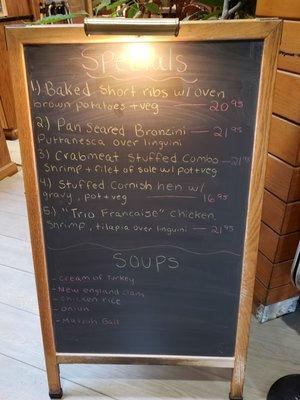 Specials
1) Baked Short ribs w/ oven
brown potatoes + veg 20 95
2) Pan Seared Bronzini 21 95
Puttanesca over linguini
3) Crabmeat Stuffed Combo 21 95
Shrimp + filet of sole w/ pot + veg
4) Stuffed Cornish hen w/
gravy, pot + veg 16 95
5) "Trio Francaise" chicken,
Shrimp, tilapia over linguini 21 95
Soups
- Cream of Turkey
- New england clam
- Chicken rice
- onion
- Matzoh Ball